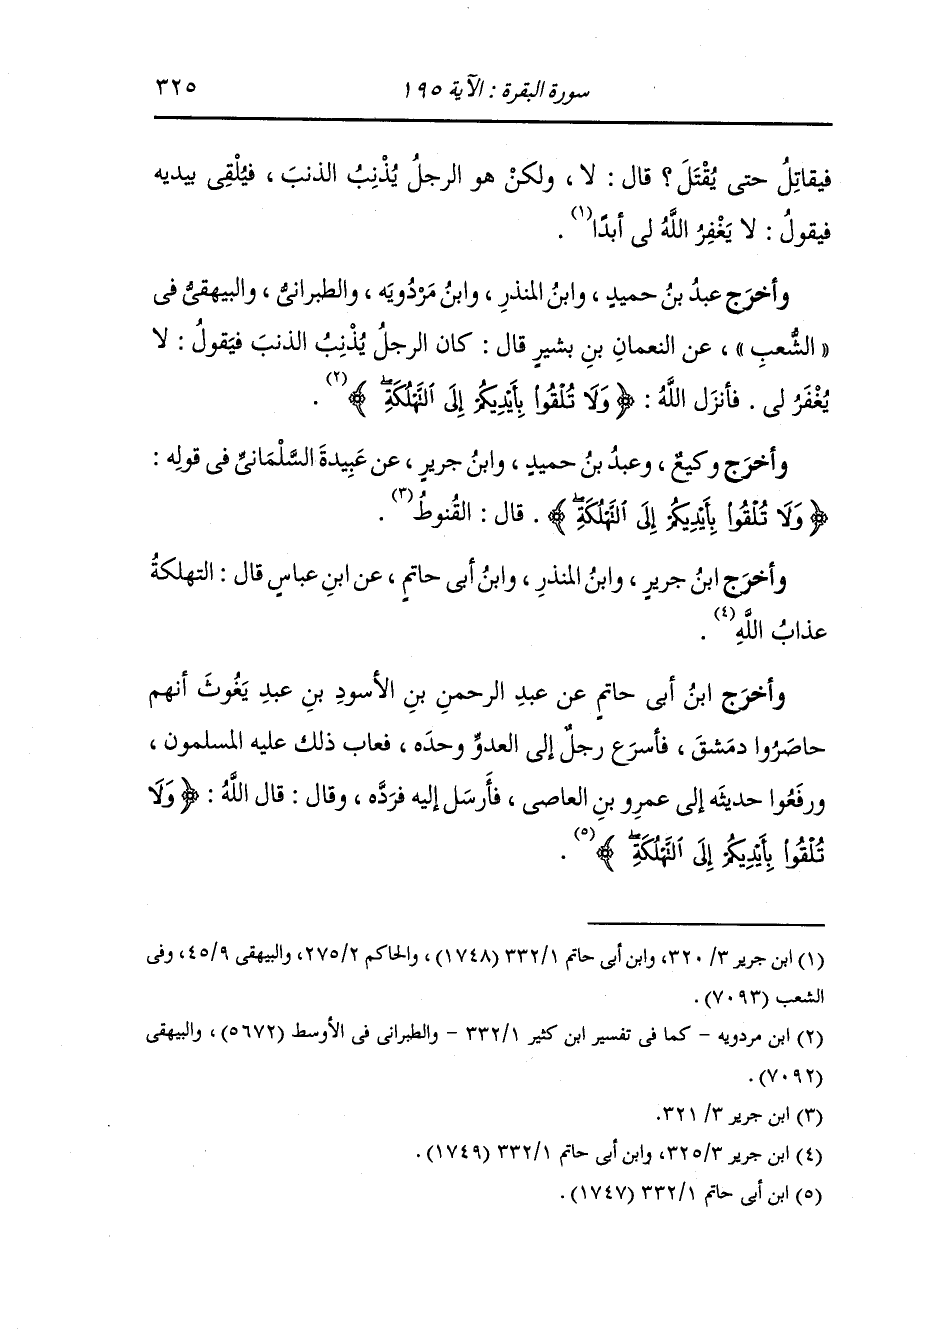 سورة البقرة : الآية ١٩٥ ٣٢٥
فيقاتِلُ حتى يُقْتَلَ؟ قال : لا ، ولكنْ هو الرجلُ يُذْنِبُ الذنبَ ، فيُلْقِى بيديه
فيقولُ : لا يَغْفِرُ اللَّهُ لى أبدًا(١) .
وأخرَج عبدُ بنُ حميدٍ ، وابنُ المنذرِ ، وابنُ مَرْدُويَه ، والطبرانىُّ ، والبيهقىُّ فى
« الشُّعبِ » ، عن النعمانِ بنِ بشيرٍ قال : كان الرجلُ يُذْنِبُ الذنبَ فيَقولُ : لا
يُغْفَرُ لى . فأنزَل اللَّهُ : ﴿ وَلَا تُلْقُوا۟ بِأَيْدِيكُمْ إِلَى ٱلتَّهْلُكَةِۖ ﴾(٢) .
وأخرَج وكيعٌ ، وعبدُ بنُ حميدٍ ، وابنُ جريرٍ ، عن عَبِيدةَ السَّلْمَانىِّ فى قولِه :
﴿ وَلَا تُلْقُوا۟ بِأَيْدِيكُمْ إِلَى ٱلتَّهْلُكَةِۖ ﴾ . قال : القُنوطُ(٣) .
وأخرَج ابنُ جريرٍ ، وابنُ المنذرِ ، وابنُ أبى حاتمٍ ، عن ابنِ عباسٍ قال : التهلكةُ
عذابُ اللَّهِ(٤) .
وأخرَج ابنُ أبى حاتمٍ عن عبدِ الرحمنِ بنِ الأسودِ بنِ عبدِ يَغُوثَ أنهم
حاصَرُوا دمَشقَ ، فأسرَع رجلٌ إلى العدوِّ وحدَه ، فعاب ذلك عليه المسلمون ،
ورفَعُوا حديثَه إلى عمرِو بنِ العاصى ، فأَرسَل إليه فرَدَّه ، وقال : قال اللَّهُ : ﴿ وَلَا
تُلْقُوا۟ بِأَيْدِيكُمْ إِلَى ٱلتَّهْلُكَةِۖ ﴾(٥) .
(١) ابن جرير ٣/ ٣٢٠، وابن أبى حاتم ٣٣٢/١ (١٧٤٨) ، والحاكم ٢٧٥/٢، والبيهقى ٤٥/٩، وفى
الشعب (٧٠٩٣) .
(٢) ابن مردويه - كما فى تفسير ابن كثير ٣٣٢/١ - والطبرانى فى الأوسط (٥٦٧٢) ، والبيهقى
(٧٠٩٢) .
(٣) ابن جرير ٣/ ٣٢١.
(٤) ابن جرير ٣٢٥/٣، وابن أبى حاتم ٣٣٢/١ (١٧٤٩) .
(٥) ابن أبى حاتم ٣٣٢/١ (١٧٤٧) .